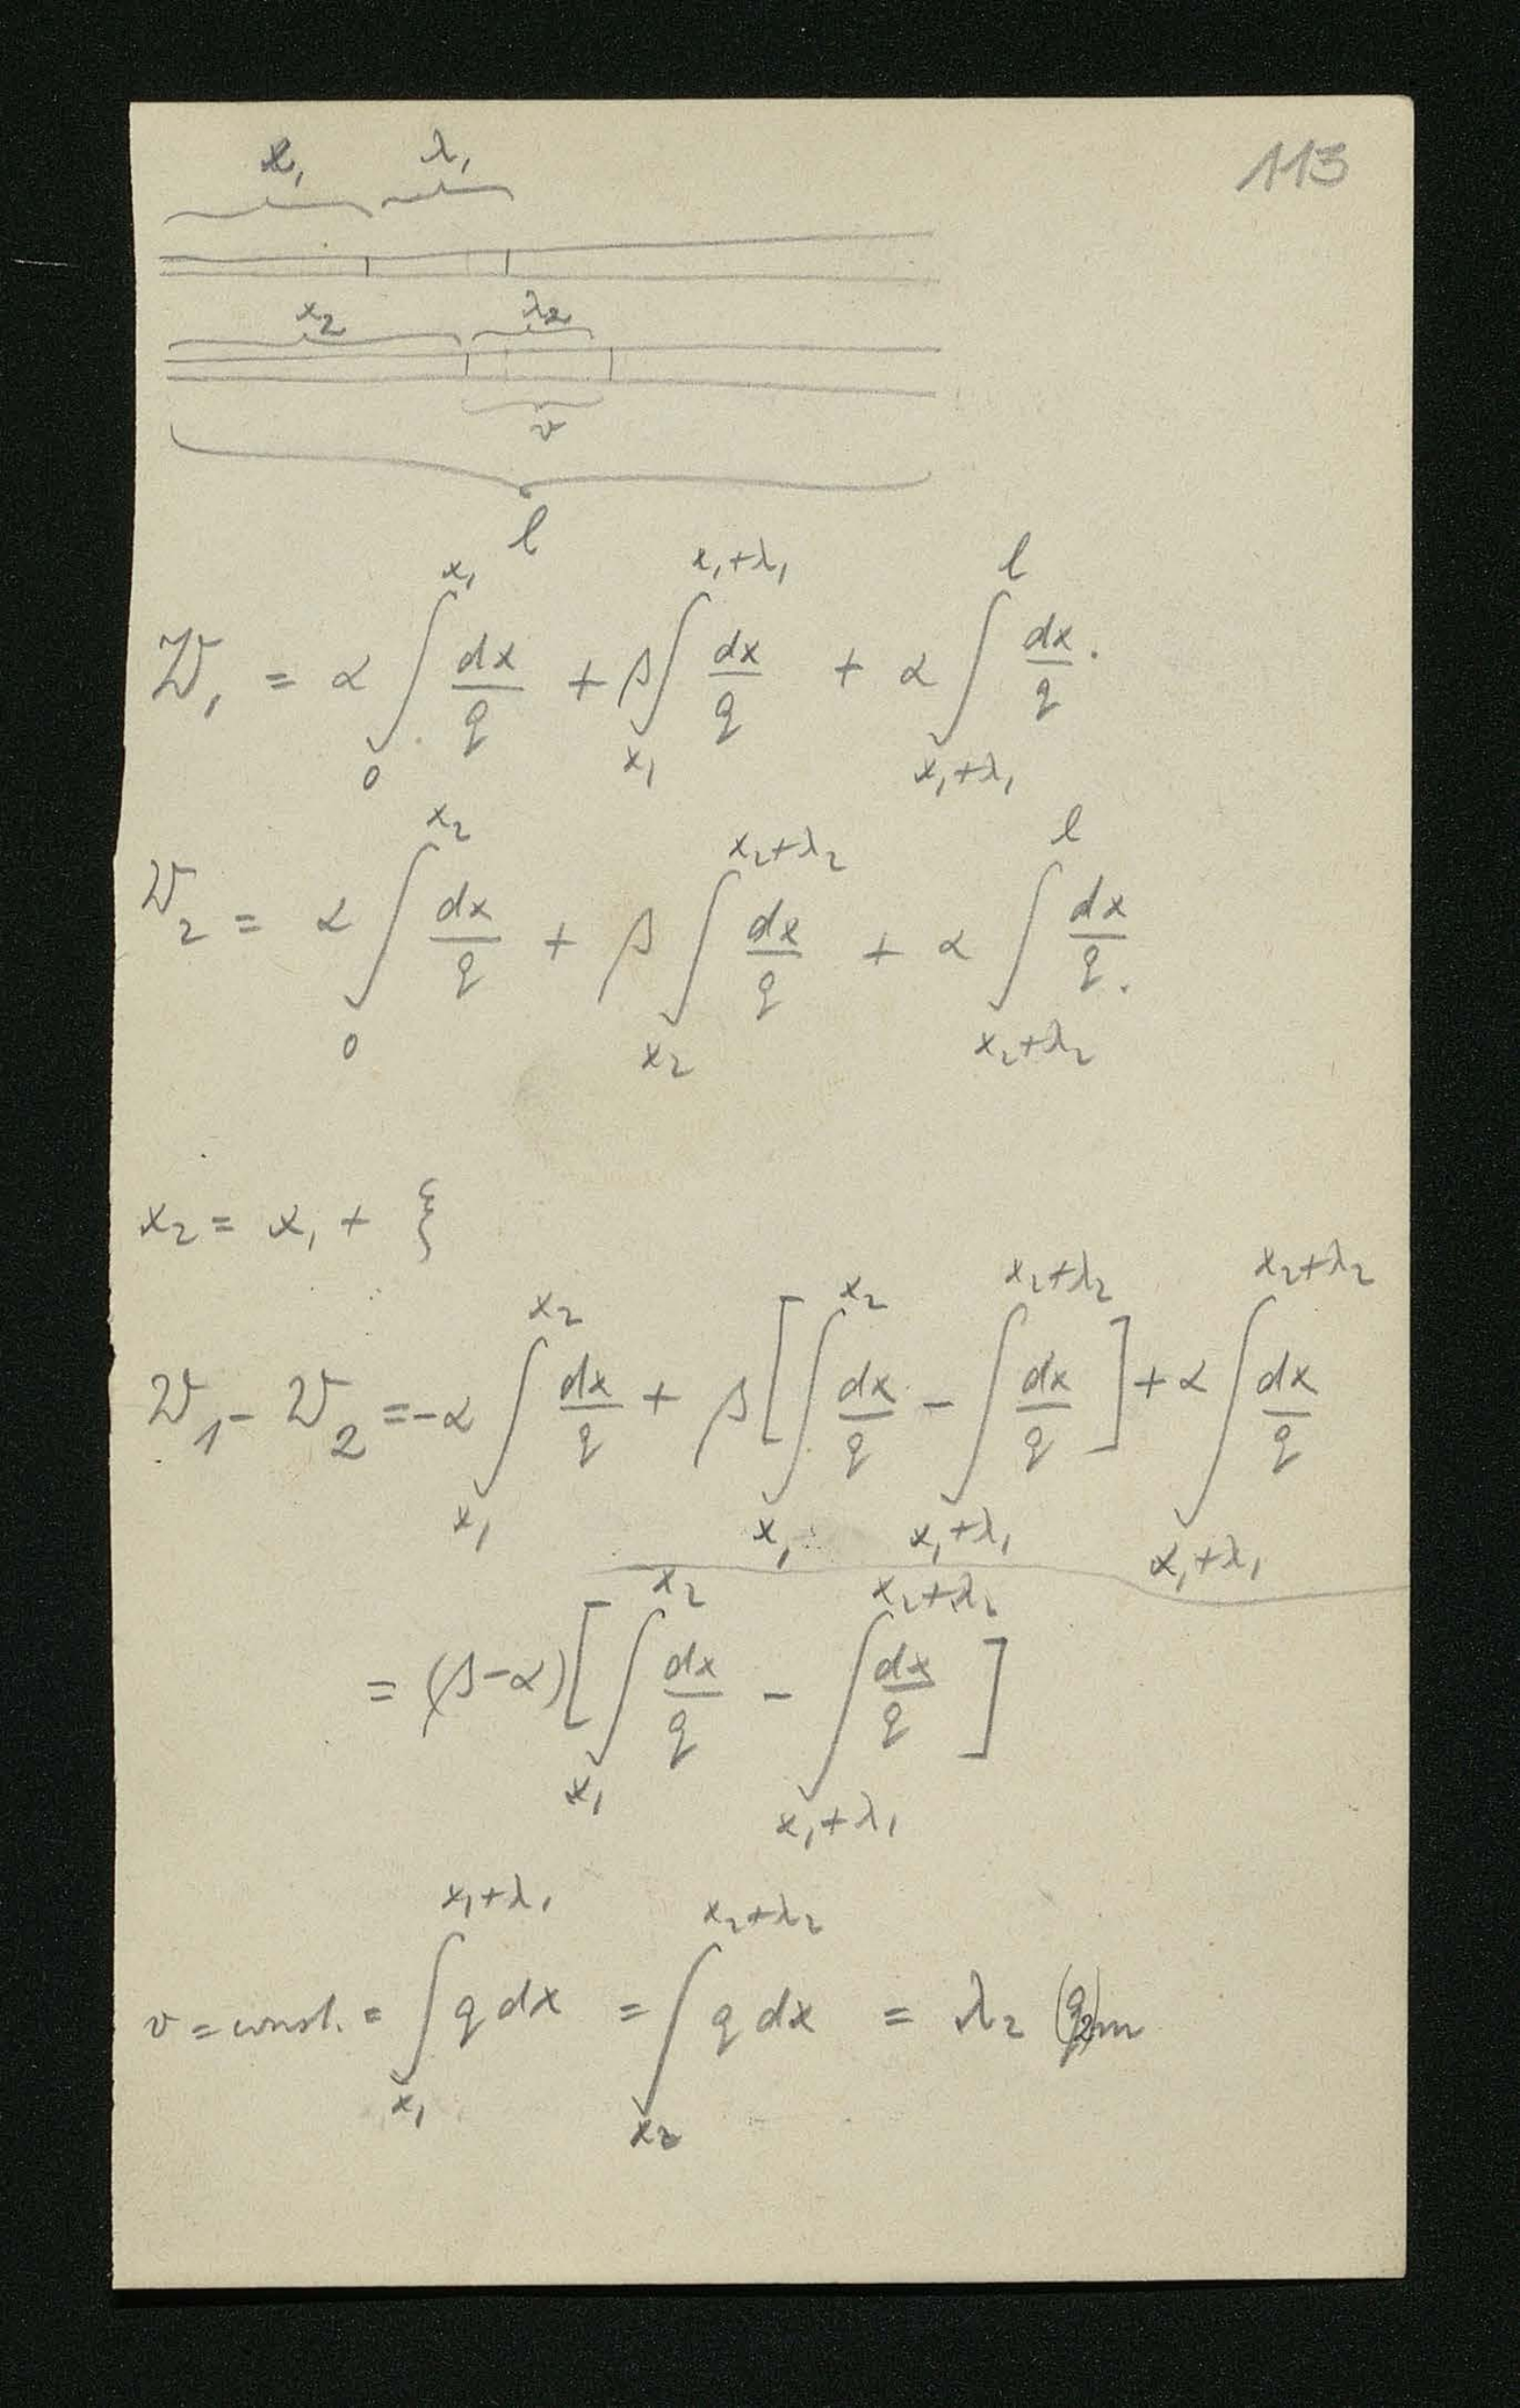 113
x₁ λ₁
x₂ λ₂
v
l
W₁ = α ∫₀^{x₁} dx/q + β ∫_{x₁}^{x₁+λ₁} dx/q + α ∫_{x₁+λ₁}^{l} dx/q.
W₂ = α ∫₀^{x₂} dx/q + β ∫_{x₂}^{x₂+λ₂} dx/q + α ∫_{x₂+λ₂}^{l} dx/q.
x₂ = x₁ + ξ
W₁ - W₂ = -α ∫_{x₁}^{x₂} dx/q + β [∫_{x₁}^{x₂} dx/q - ∫_{x₁+λ₁}^{x₂+λ₂} dx/q] + α ∫_{x₁+λ₁}^{x₂+λ₂} dx/q
= (β-α) [∫_{x₁}^{x₂} dx/q - ∫_{x₁+λ₁}^{x₂+λ₂} dx/q]
v = const. = ∫_{x₁}^{x₁+λ₁} q dx = ∫_{x₂}^{x₂+λ₂} q dx = λ₂ (q₂)m